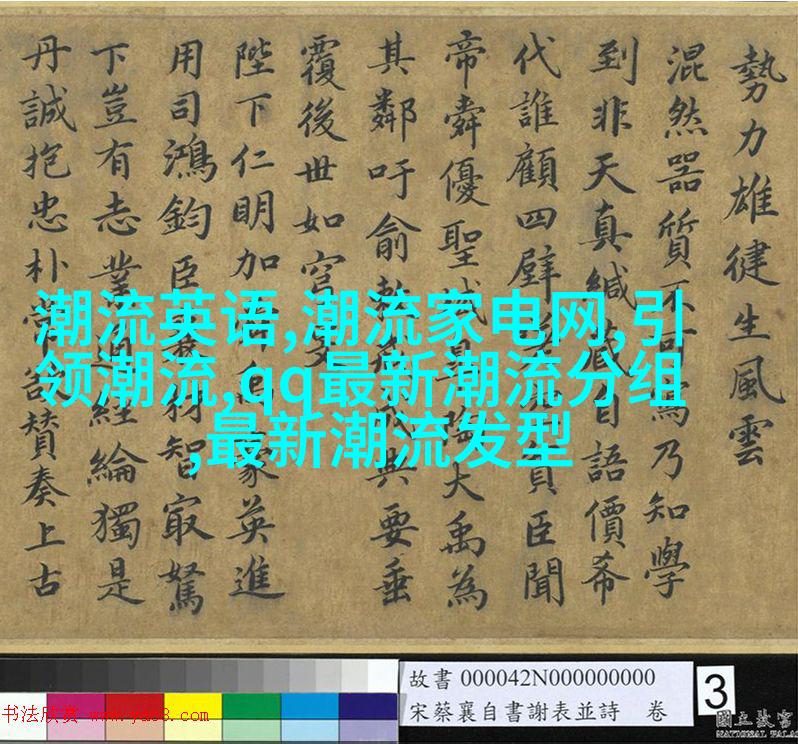 勢力雄徤生風雲
混然器質不可寫乃知學
到非天真緘藏自語價希
代誰顧四壁貧臣聞
帝舜優聖域皋陶大禹為
其鄰吁俞典要垂
覆後世如穹
陛下仁明加家英進
用司鴻鈞臣材智最駑
下豈有志業通經綸獨是
丹誠抱忠朴常欲贊奏上古
潮流英语,潮流家电网,引
领潮流,qq最新潮流分组
,最新潮流发型
故書 000042N000000000
宋蔡襄自書謝表並詩 卷
3
書法欣赏 www.yac8.com
國立故宮
NATIONAL PALA